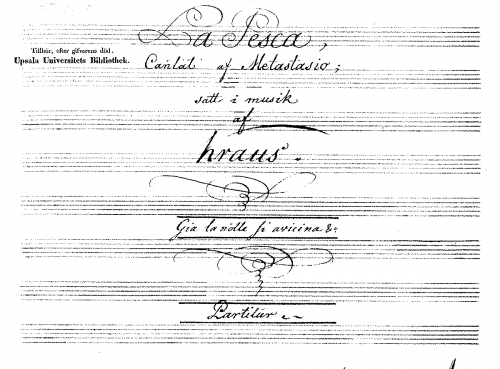 La Pesca,
Tillhör, efter gifvarens död,
Upsala Universitets Bibliothek.
Cantat af Metastasio;
satt i musik
af
Kraus.
Gia la notte si avicina &c
Partitur